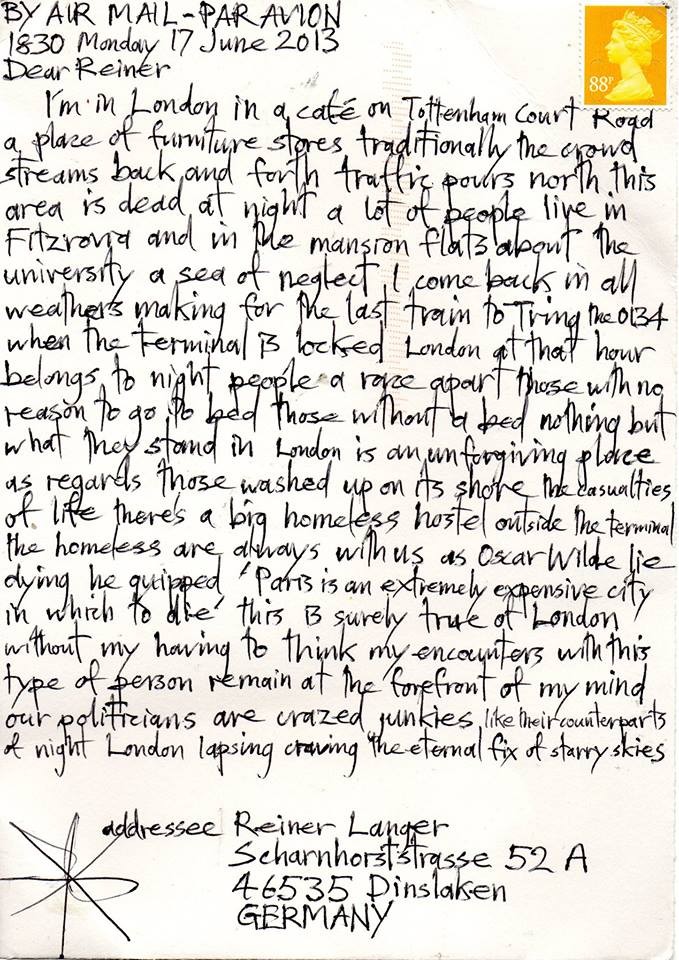 BY AIR MAIL - PAR AVION
1830 Monday 17 June 2013
Dear Reiner
88P
I'm in London in a café on Tottenham Court Road
a place of furniture stores traditionally the crowd
streams back and forth traffic pours north this
area is dead at night a lot of people live in
Fitzrovia and in the mansion flats about the
university a sea of neglect I come back in all
weathers making for the last train to Tring the 0134
when the terminal is locked London at that hour
belongs to night people a race apart those with no
reason to go to bed those without a bed nothing but
what they stand in London is an unforgiving place
as regards those washed up on its shore the casualties
of life there's a big homeless hostel outside the terminal
the homeless are always with us as Oscar Wilde lie
dying he quipped 'Paris is an extremely expensive city
in which to die' this is surely true of London
without my having to think my encounters with this
type of person remain at the forefront of my mind
our politicians are crazed junkies like their counterparts
of night London lapsing craving the eternal fix of starry skies
addressee Reiner Langer
Scharnhorststrasse 52 A
46535 Dinslaken
GERMANY